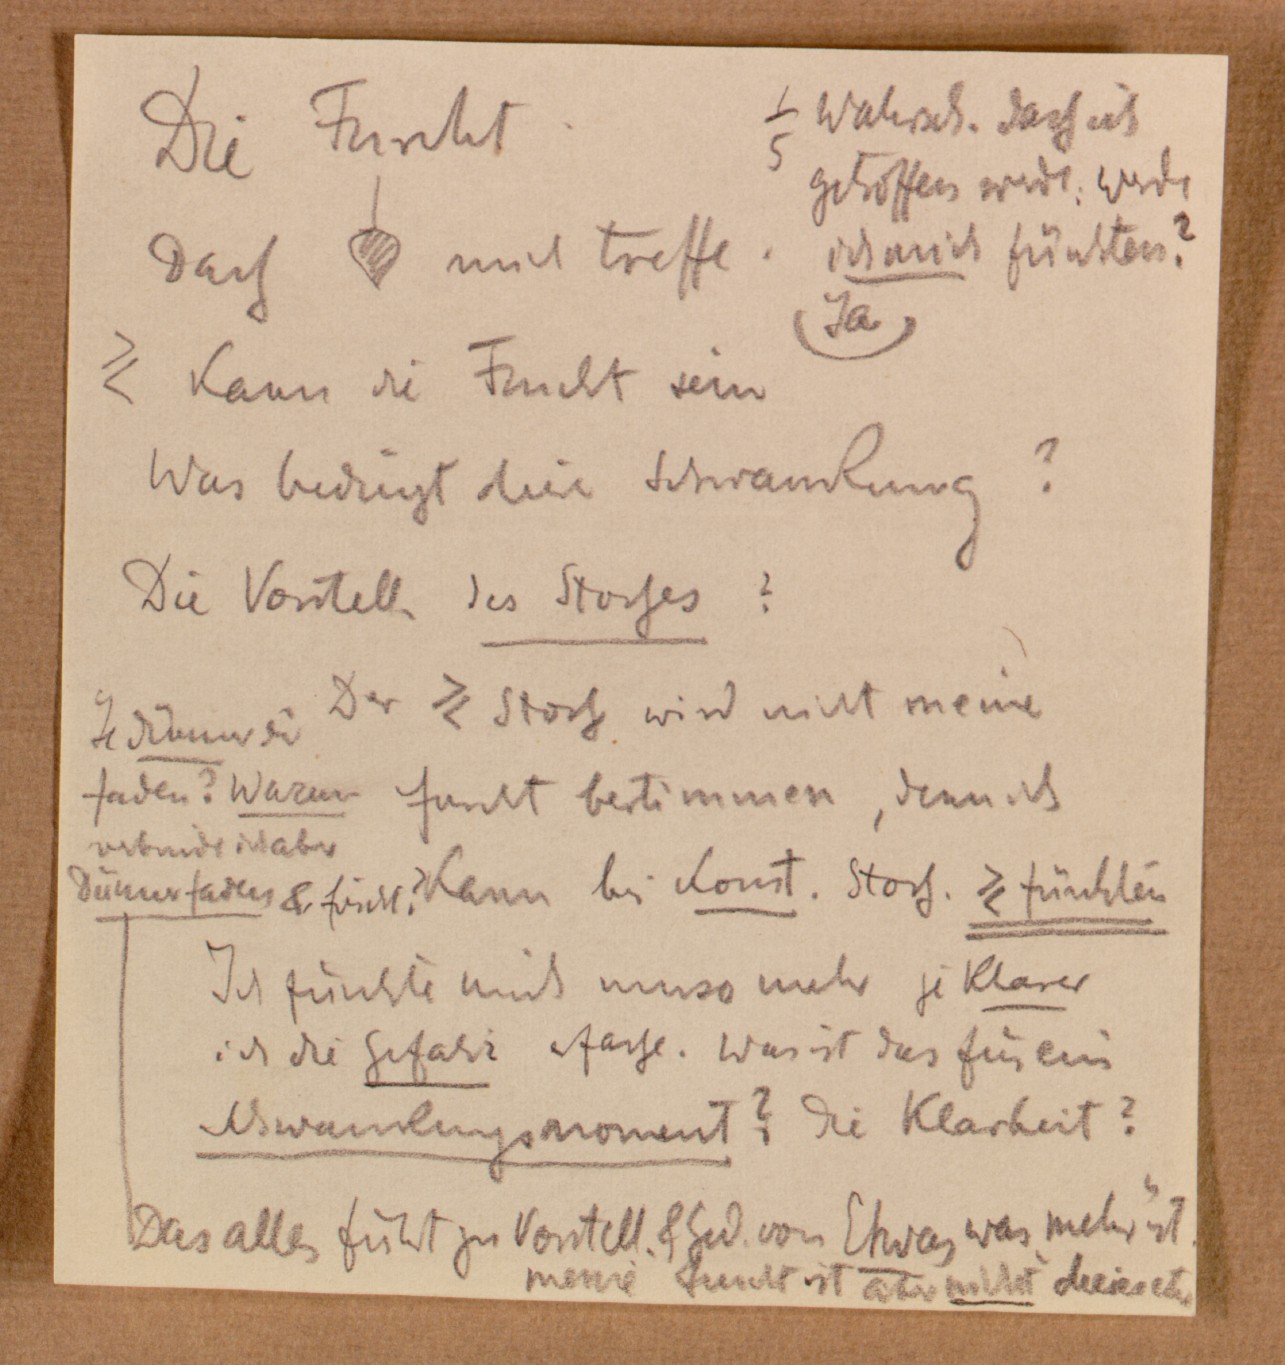 Die Furcht
Dass mich treffe.
1/5 Wahrsch. dass ich
getroffen werde. werde
ich mich fürchten?
(Ja)
≷ Kann die Furcht sein
Was bedingt diese Schwankung?
Die Vorstell. des Stosses?
Der ≷ Stoss wird nicht meine
Furcht bestimmen, denn ich
Kann bei Konst. Stoss. ≷ fürchten
Je dünner die
Faden? Warum
verbinde ich aber
Dünnerfaden & fürcht.?
Ich fürchte mich umso mehr je Klarer
ich die Gefahr fasse. Was ist das für ein
Schwankungsmoment? Die Klarheit?
Das alles führt zu Vorstell. & Ged. von Etwas was "mehr" ist.
meine Furcht ist aber nicht